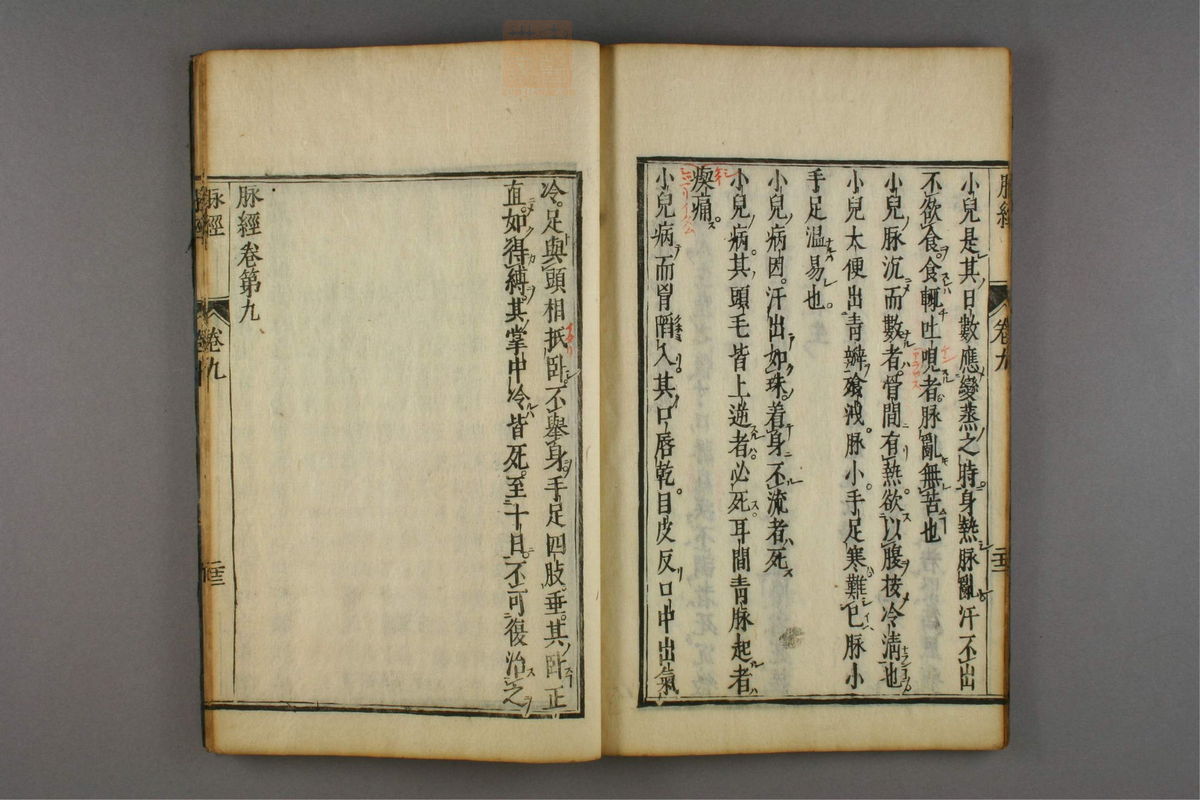 脉經
卷九
小兒是其日數應變蒸之時身熱脉亂汗不出
不欲食食輒吐哯者脉亂無苦也
小兒脉沉而數者骨間有熱欲以腹按冷清也
小兒大便出青瓣飧泄脉小手足寒難已脉小
手足温易也
小兒病困汗出如珠着身不流者死
小兒病其頭毛皆上逆者必死耳間青脉起者
瘈痛
小兒病而胷陷入其口唇乾目皮反口中出氣
冷足與頭相抵卧不舉身手足四肢垂其卧正
直如得縛其掌中冷皆死至十日不可復治之
脉經卷第九
脉經
卷九